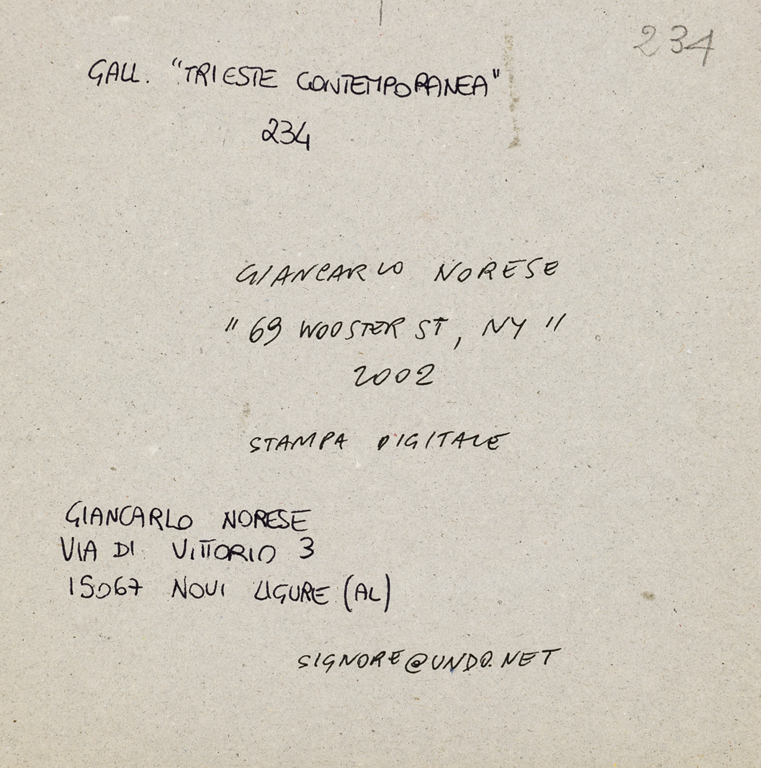 234
GALL. "TRIESTE CONTEMPORANEA"
234
GIANCARLO NORESE
"69 WOOSTER ST, NY"
2002
STAMPA DIGITALE
GIANCARLO NORESE
VIA DI VITTORIO 3
15067 NOVI LIGURE (AL)
SIGNORE@UNDO.NET